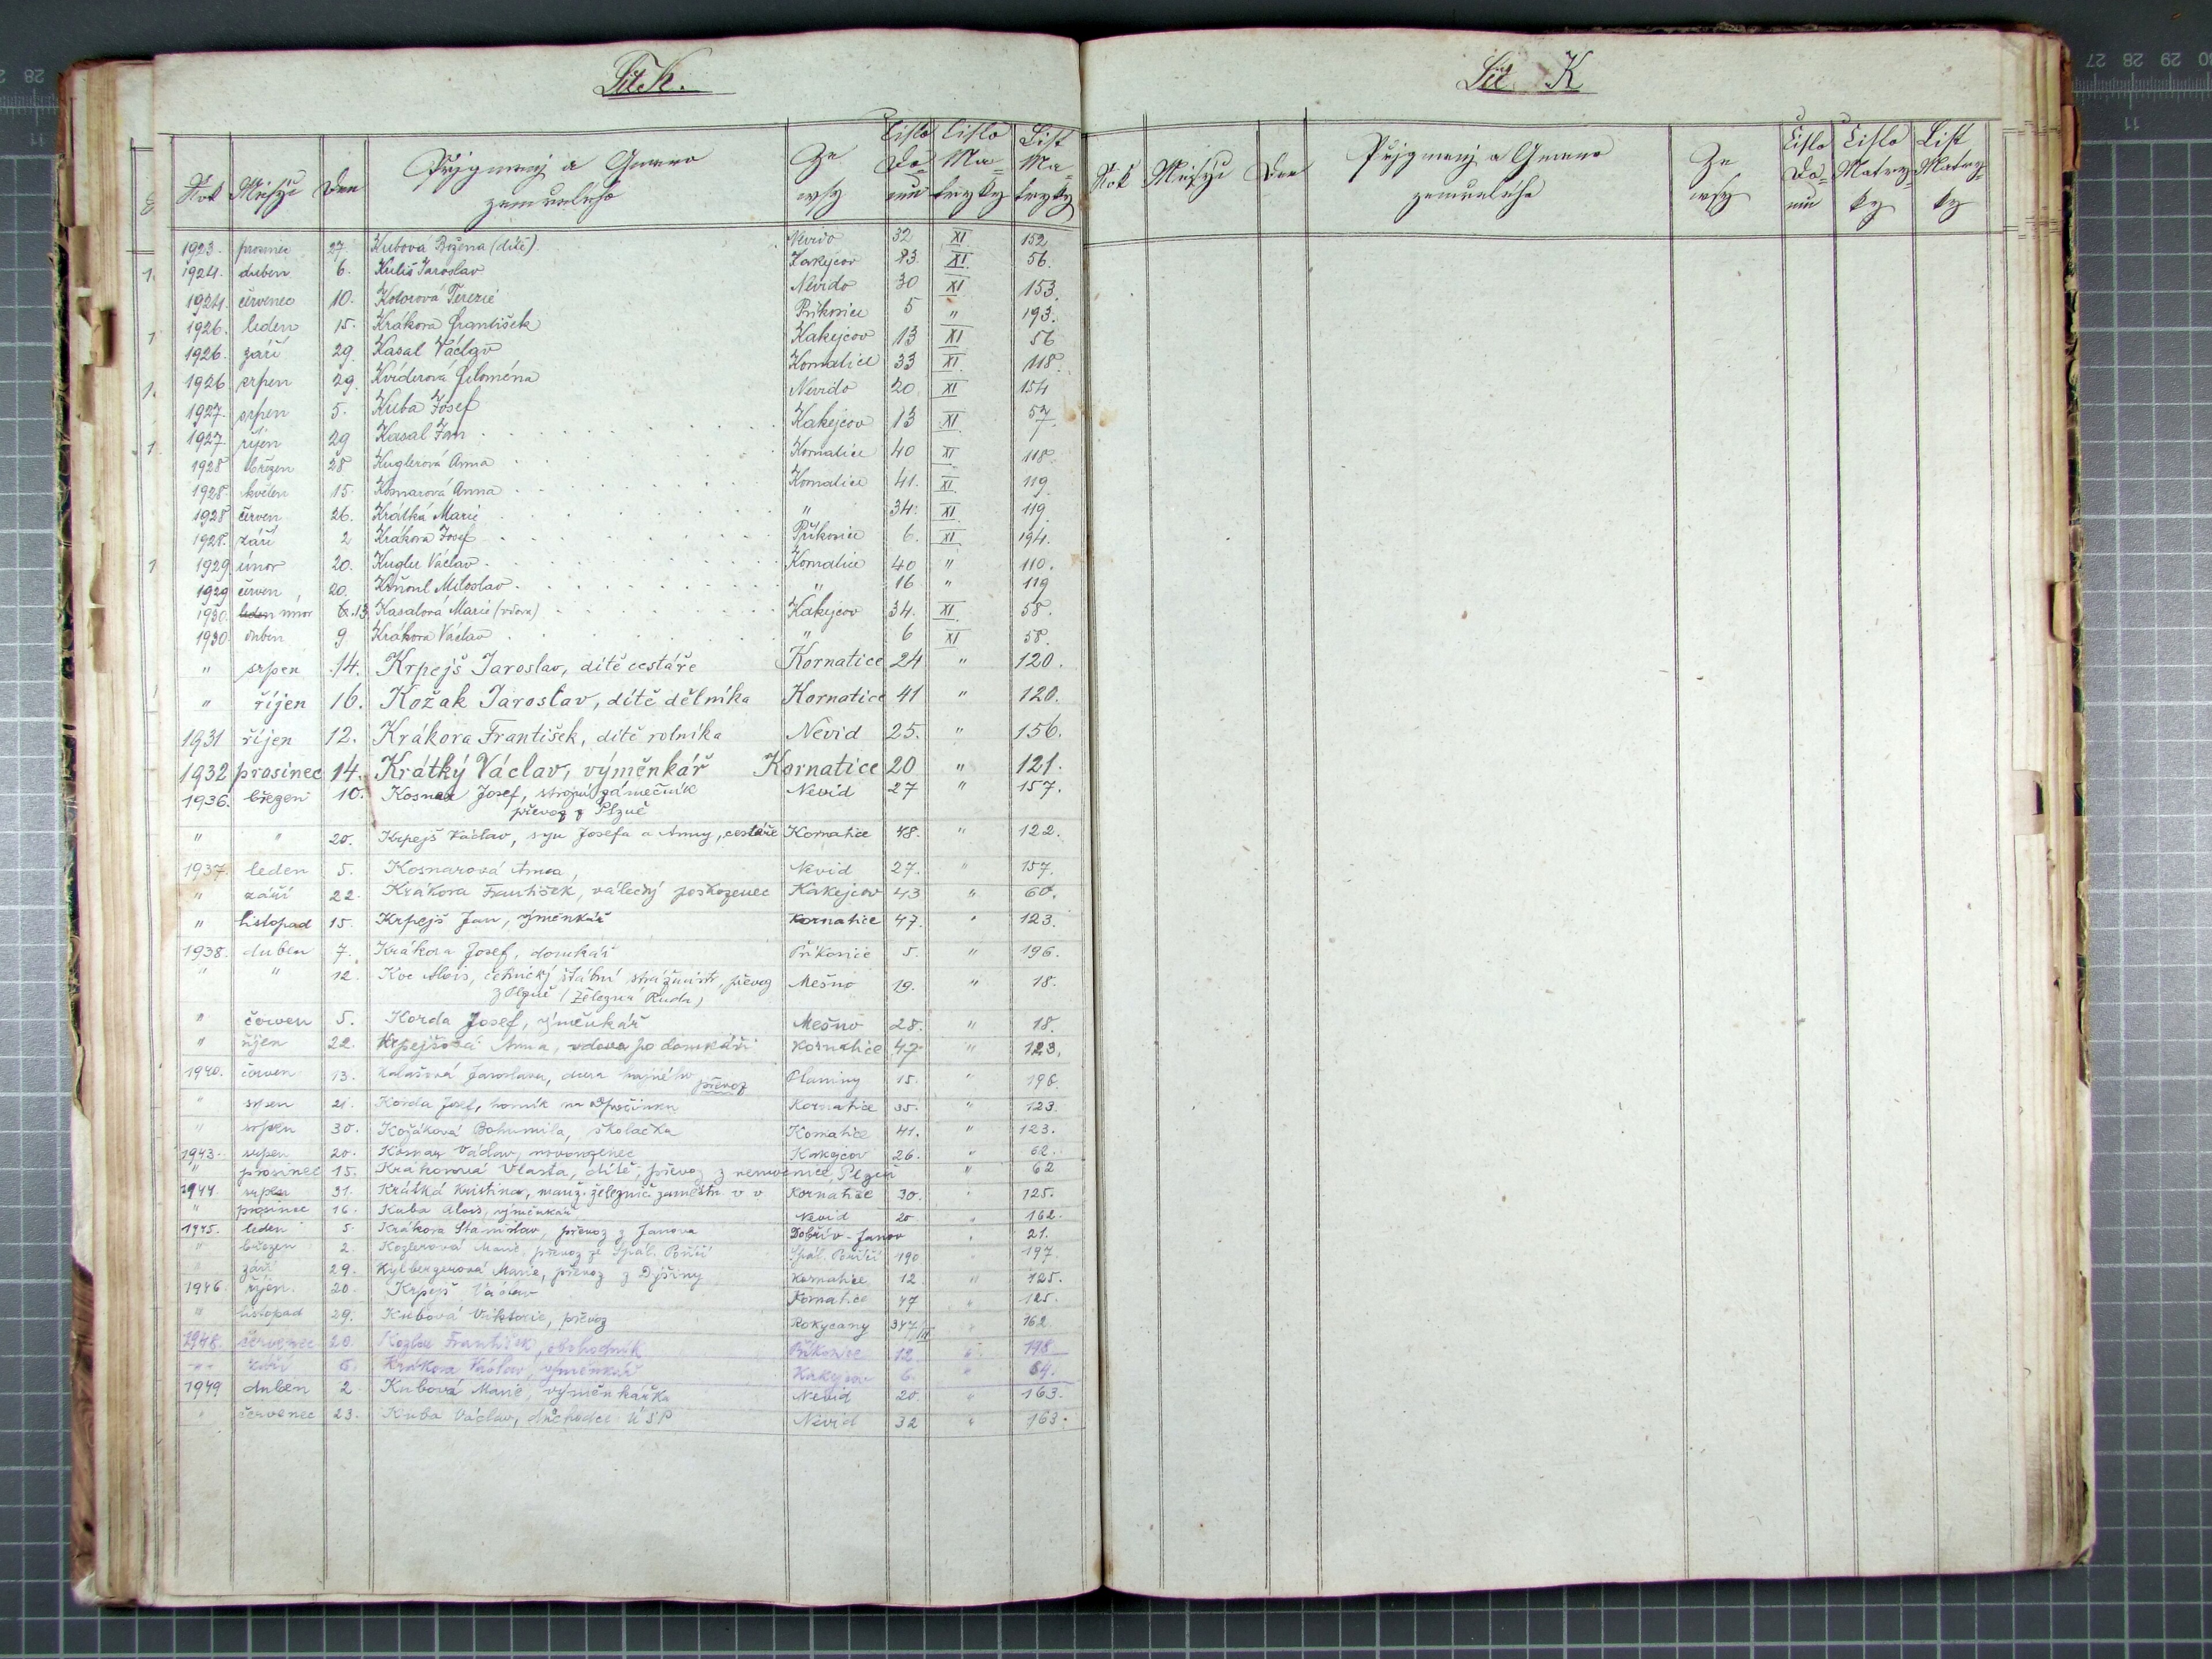 Lit. K.
Rok Měsýc Den Přígmení a Gmeno zemřelého Ze wsy Číslo Domu Číslo Matryky List Matryky
1923. prosinec 27. Kubová Božena (dítě). Nevido 32 XI 152
1924. duben 6. Kuliš Jaroslav Kakejcov 83. XI. 56.
1924. červenec 10. Terezie Nevido 30 XI 153.
1926. leden 15. Krákora František Příkosice 5 " 193.
1926. září 29. Kasal Václav Kakejcov 13 XI 56
1926 srpen 29. Kviderová Filoména Kornatice 33 XI. 118.
1927. srpen 5. Kuba Josef Nevido 20 XI 154
1927 říjen 29 Kasal Jan Kakejcov 13 XI. 57.
1928 březen 28 Kuglerová Anna Kornatice 40 XI 118.
1928. květen 15. Kosnarová Anna Kornatice 41. XI. 119
1928 červen 26. Krátká Marie " 34. XI. 119.
1928. září 2 Krákora Josef Příkosice 6. XI. 194.
1929. únor 20. Kugler Václav Kornatice 40 " 110.
1929 červen 20. Miloslav " 16 " 119
1930. leden únor 13. Kasalová Marie (vdova) Kakejcov 34. XI. 58.
1930. duben 9 Krákora Václav " 6 XI 58.
" srpen 14. Krpejš Jaroslav, dítě cestáře Kornatice 24 " 120.
" říjen 16. Kožak Jaroslav, dítě dělníka Kornatice 41 " 120.
1931 říjen 12. Krákora František, dítě rolníka Nevid 25. " 156.
1932 prosinec 14. Krátký Václav, výměnkář Kornatice 20 " 121.
1936. březen 10. Kosnar Josef, strojní zámečník Nevid 27 " 157.
převoz z Plzně
" " 20. Krpejš Václav, syn Josefa a Anny, cestáře Kornatice 48. " 122.
1937. leden 5. Kosnarová Anna, Nevid 27. " 157.
" září 22. Krákora František, válečný poškozenec Kakejcov 43 " 60.
" listopad 15. Krpejš Jan, výměnkář Kornatice 47. " 123.
1938. duben 7. Krákora Josef, domkář Příkosice 5. " 196.
" " 12. Kvc Alois, četnický štábní strážmistr, převoz Mešno 19. " 18.
z Plzně (Železná Ruda)
" červen 5. Korda Josef, výměnkář Mešno 28. " 18.
" říjen 22. Krpejšová Anna, vdova po domkáři Kornatice 47 " 123.
1940. červen 13. Kalašová Jaroslava, dcera hajného převoz Planiny 15. " 196.
" srpen 21. Korda Josef, horník na odpočinku Kornatice 35. " 123.
" srpen 30. Kožáková Bohumila, školačka Kornatice 41. " 123.
1943. srpen 20. Kosnar Václav, novorozenec Kakejcov 26. " 62.
" prosinec 15. Krákorová Vlasta, dítě, převoz z nemocnice, Plzeň " 62
1944. srpen 31. Krátká Kristina, manž. železnič. zaměstn. v v Kornatice 30. " 125.
" prosinec 16. Kuba Alois, výměnkář Nevid 20 " 162.
1945. leden 5. Krákora Stanislav, převoz z Janova Dobřív-Janov " 21.
" březen 2. Kozlerová Marie, převoz ze Spál. Poříčí Spál. Poříčí 190 197.
" září 29. Kylbergerová Marie, převoz z Dýšiny Kornatice 12. " 125.
1946. říjen. 20. Krpejš Václav Kornatice 47 " 125.
" listopad 29. Kubová Viktorie, převoz Rokycany 347/III " 162
1948. červenec 20. Kozler František, obchodník Příkosice 12. " 198
" září 6. Krákora Václav, výměnkář Kakejcov 6. " 64.
1949 duben 2 Kubová Marie, výměnkářka Nevid 20. " 163.
" červenec 23. Kuba Václav, důchodce ÚSP Nevid 32 " 163.
Lit K
Rok Měsýc Den Přígmení a Gmeno zemřelého Ze wsy Číslo Domu Číslo Matryky List Matryky